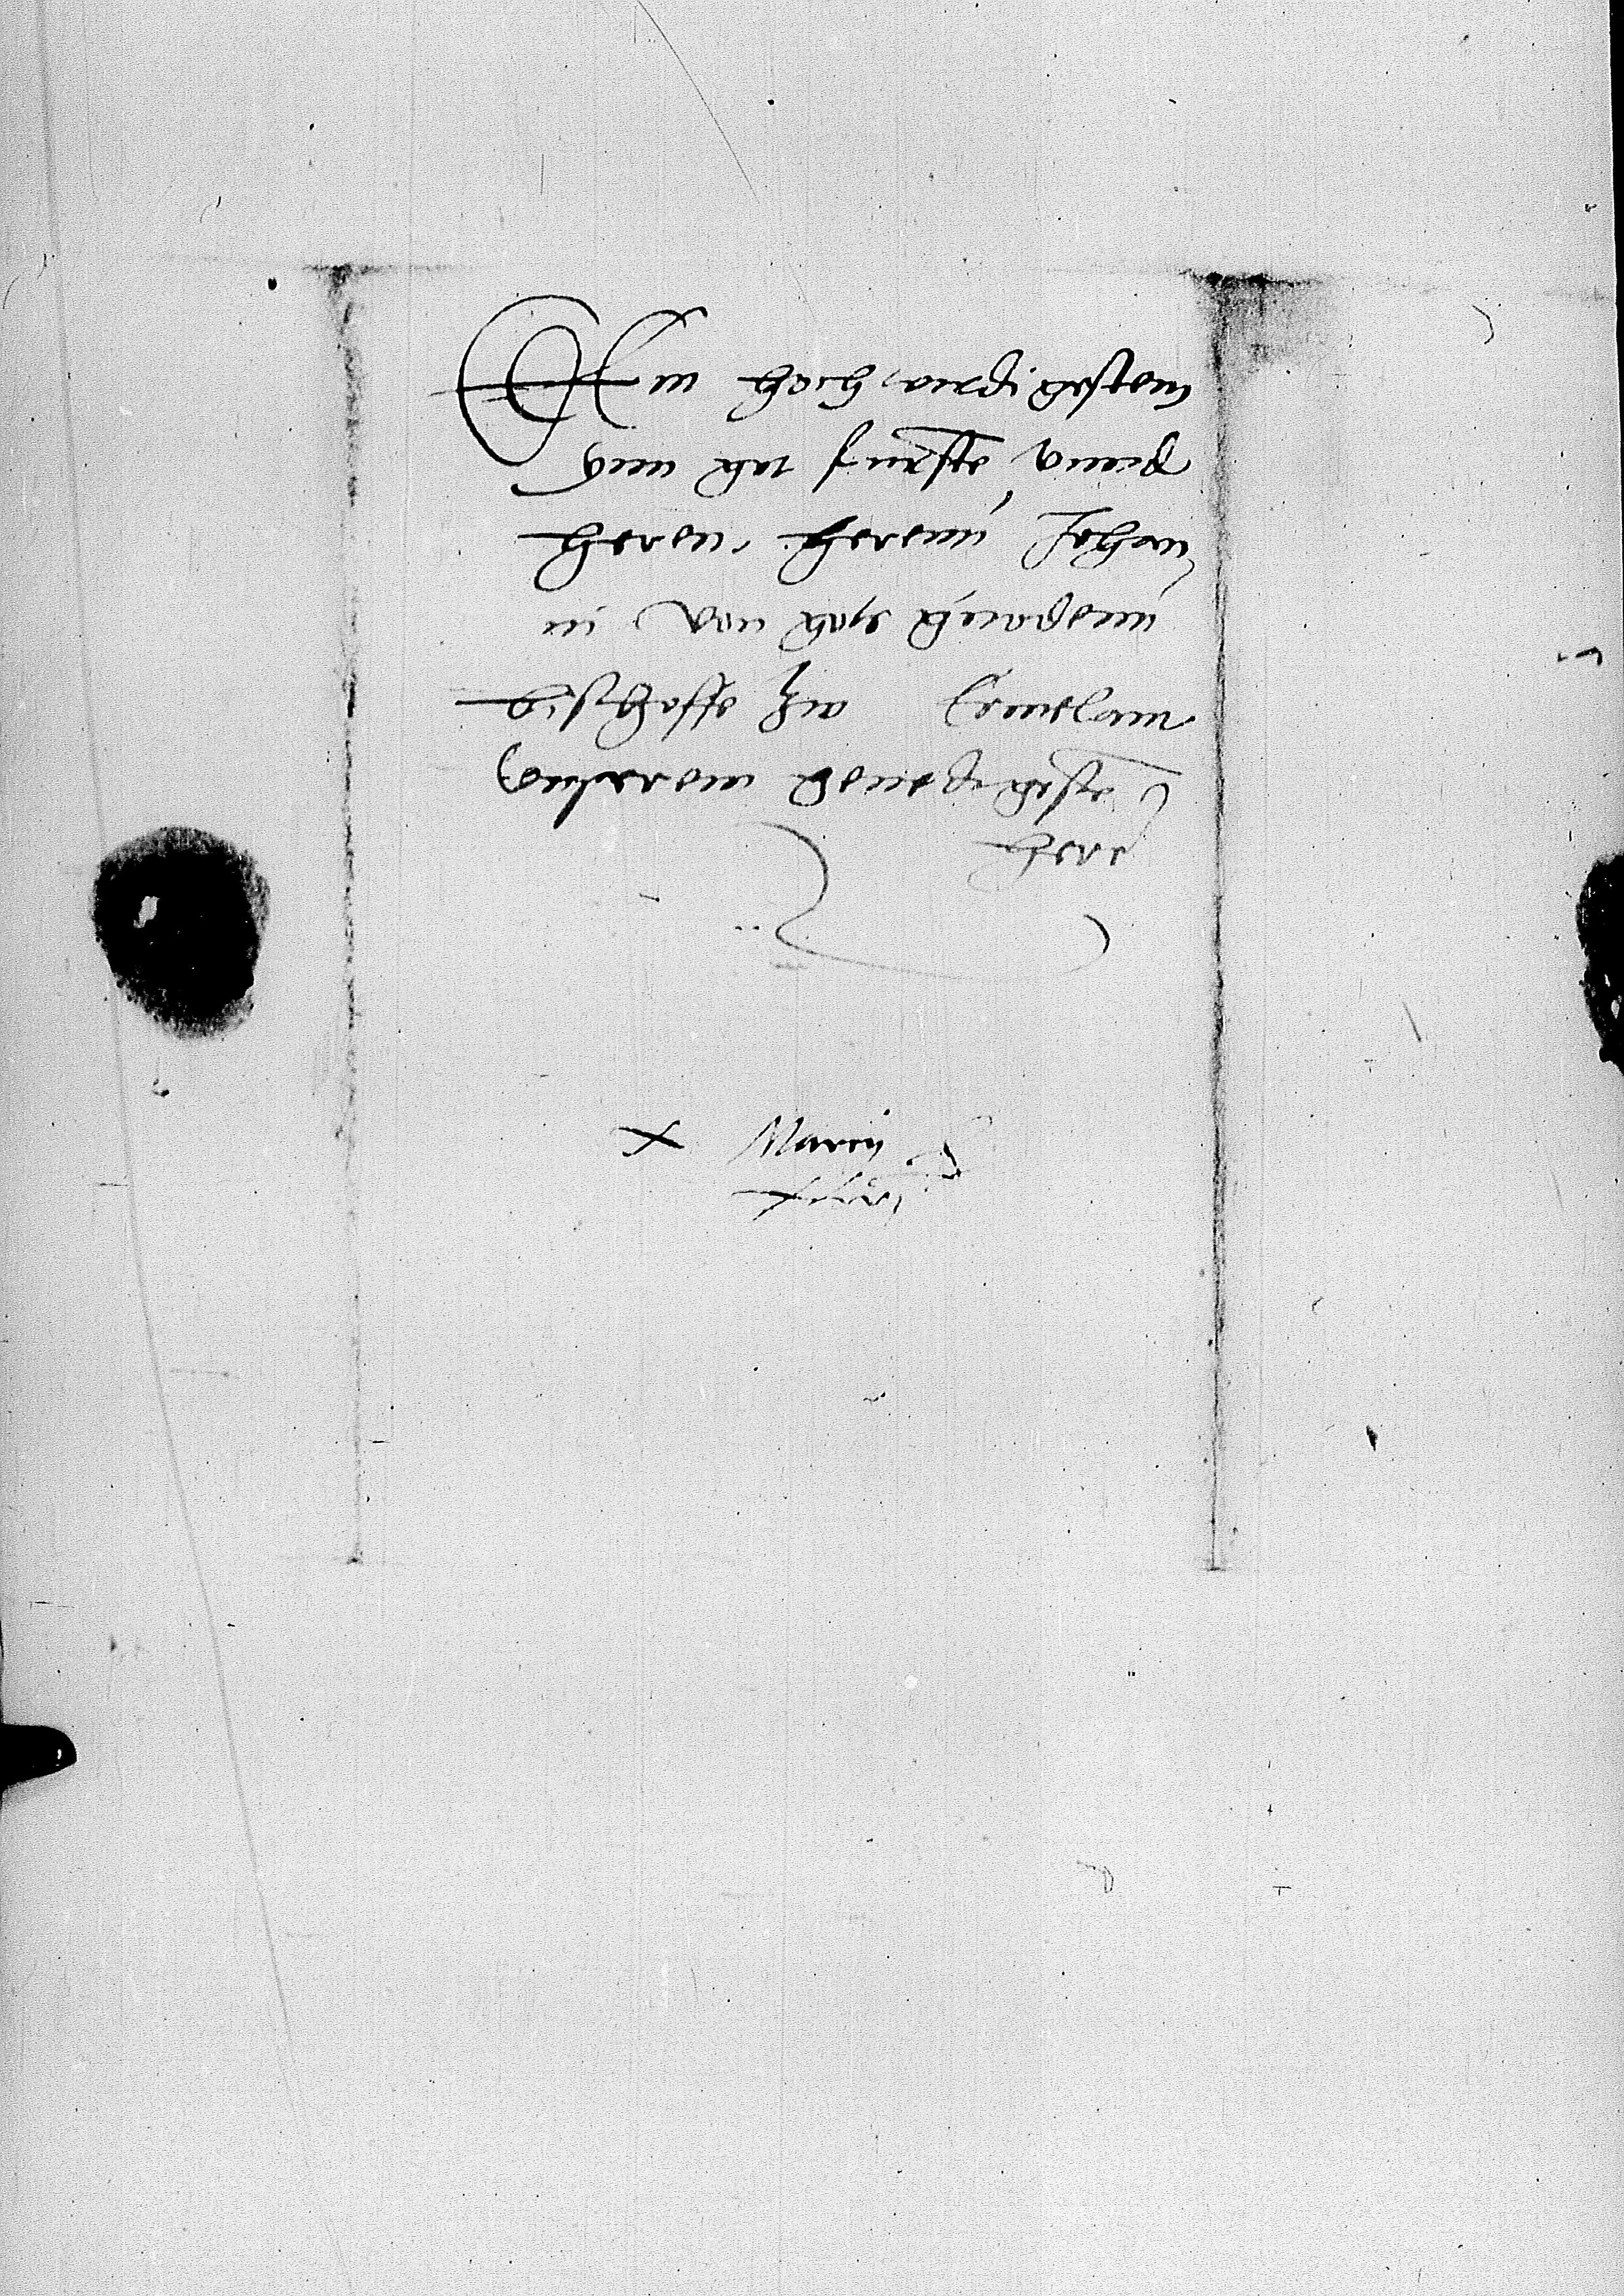 Dem hochwirdigesten
ynn got fursten unnd
heren, herenn Johan
ni von gots gnadenn
Bischoffe zu Ermelann
meynem gnedigsten
heren
X Marcij